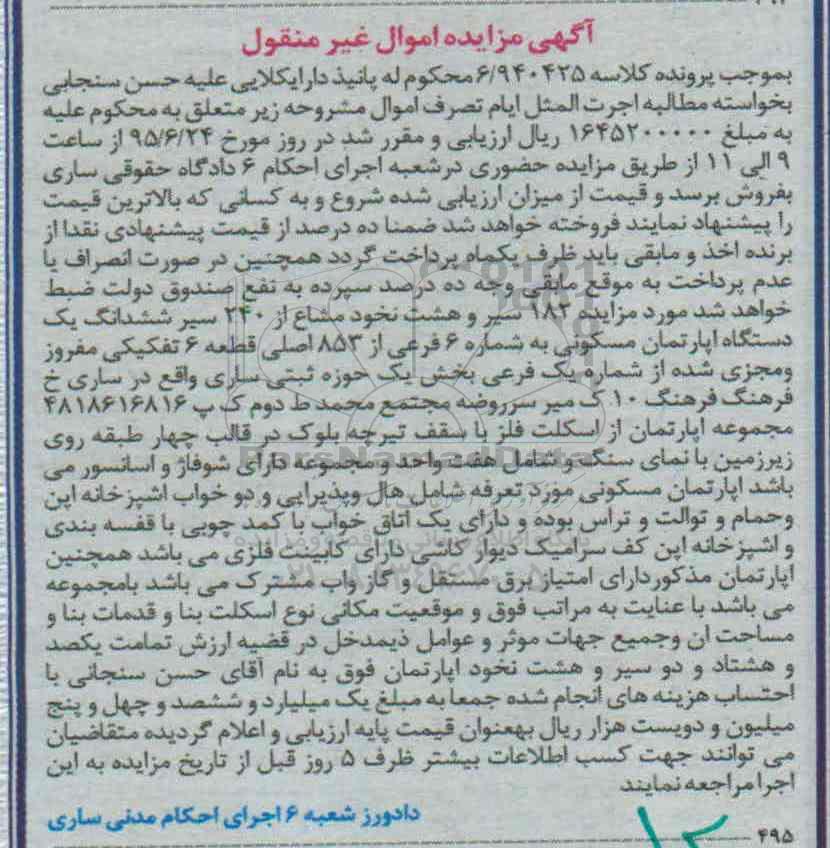 آگهی مزایده اموال غیر منقول
بموجب پرونده کلاسه ۶/۹۴۰۴۲۵ محکوم له پانیذ دارایکلایی علیه حسن سنجابی
بخواسته مطالبه اجرت المثل ایام تصرف اموال مشروحه زیر متعلق به محکوم علیه
به مبلغ ۱۶۴۵۲۰۰۰۰۰ ریال ارزیابی و مقرر شد در روز مورخ ۹۵/۶/۲۴ از ساعت
۹ الی ۱۱ از طریق مزایده حضوری درشعبه اجرای احکام ۶ دادگاه حقوقی ساری
بفروش برسد و قیمت از میزان ارزیابی شده شروع و به کسانی که بالاترین قیمت
را پیشنهاد نمایند فروخته خواهد شد ضمنا ده درصد از قیمت پیشنهادی نقدا از
برنده اخذ و مابقی باید ظرف یکماه پرداخت گردد همچنین در صورت انصراف یا
عدم پرداخت به موقع مابقی وجه ده درصد سپرده به نفع صندوق دولت ضبط
خواهد شد مورد مزایده ۱۸۲ سیر و هشت نخود مشاع از ۲۴۰ سیر ششدانگ یک
دستگاه اپارتمان مسکونی به شماره ۶ فرعی از ۸۵۳ اصلی قطعه ۶ تفکیکی مفروز
ومجزی شده از شماره یک فرعی بخش یک حوزه ثبتی ساری واقع در ساری خ
فرهنگ فرهنگ ۱۰ ک میر سرروضه مجتمع محمد ط دوم ک پ ۴۸۱۸۶۱۶۸۱۶
مجموعه اپارتمان از اسکلت فلز با سقف تیرچه بلوک در قالب چهار طبقه روی
زیرزمین با نمای سنگ و شامل هفت واحد و مجموعه دارای شوفاژ و اسانسور می
باشد اپارتمان مسکونی مورد تعرفه شامل هال وپذیرایی و دو خواب اشپزخانه اپن
وحمام و توالت و تراس بوده و دارای یک اتاق خواب با کمد چوبی با قفسه بندی
و اشپزخانه اپن کف سرامیک دیوار کاشی دارای کابینت فلزی می باشد همچنین
اپارتمان مذکوردارای امتیاز برق مستقل و گاز واب مشترک می باشد بامجموعه
می باشد با عنایت به مراتب فوق و موقعیت مکانی نوع اسکلت بنا و قدمات بنا و
مساحت ان وجمیع جهات موثر و عوامل ذیمدخل در قضیه ارزش تمامت یکصد
و هشتاد و دو سیر و هشت نخود اپارتمان فوق به نام آقای حسن سنجانی با
احتساب هزینه های انجام شده جمعا به مبلغ یک میلیارد و ششصد و چهل و پنج
میلیون و دویست هزار ریال بهعنوان قیمت پایه ارزیابی و اعلام گردیده متقاضیان
می توانند جهت کسب اطلاعات بیشتر ظرف ۵ روز قبل از تاریخ مزایده به این
اجرا مراجعه نمایند
دادورز شعبه ۶ اجرای احکام مدنی ساری
۴۹۵
ParsNamadData